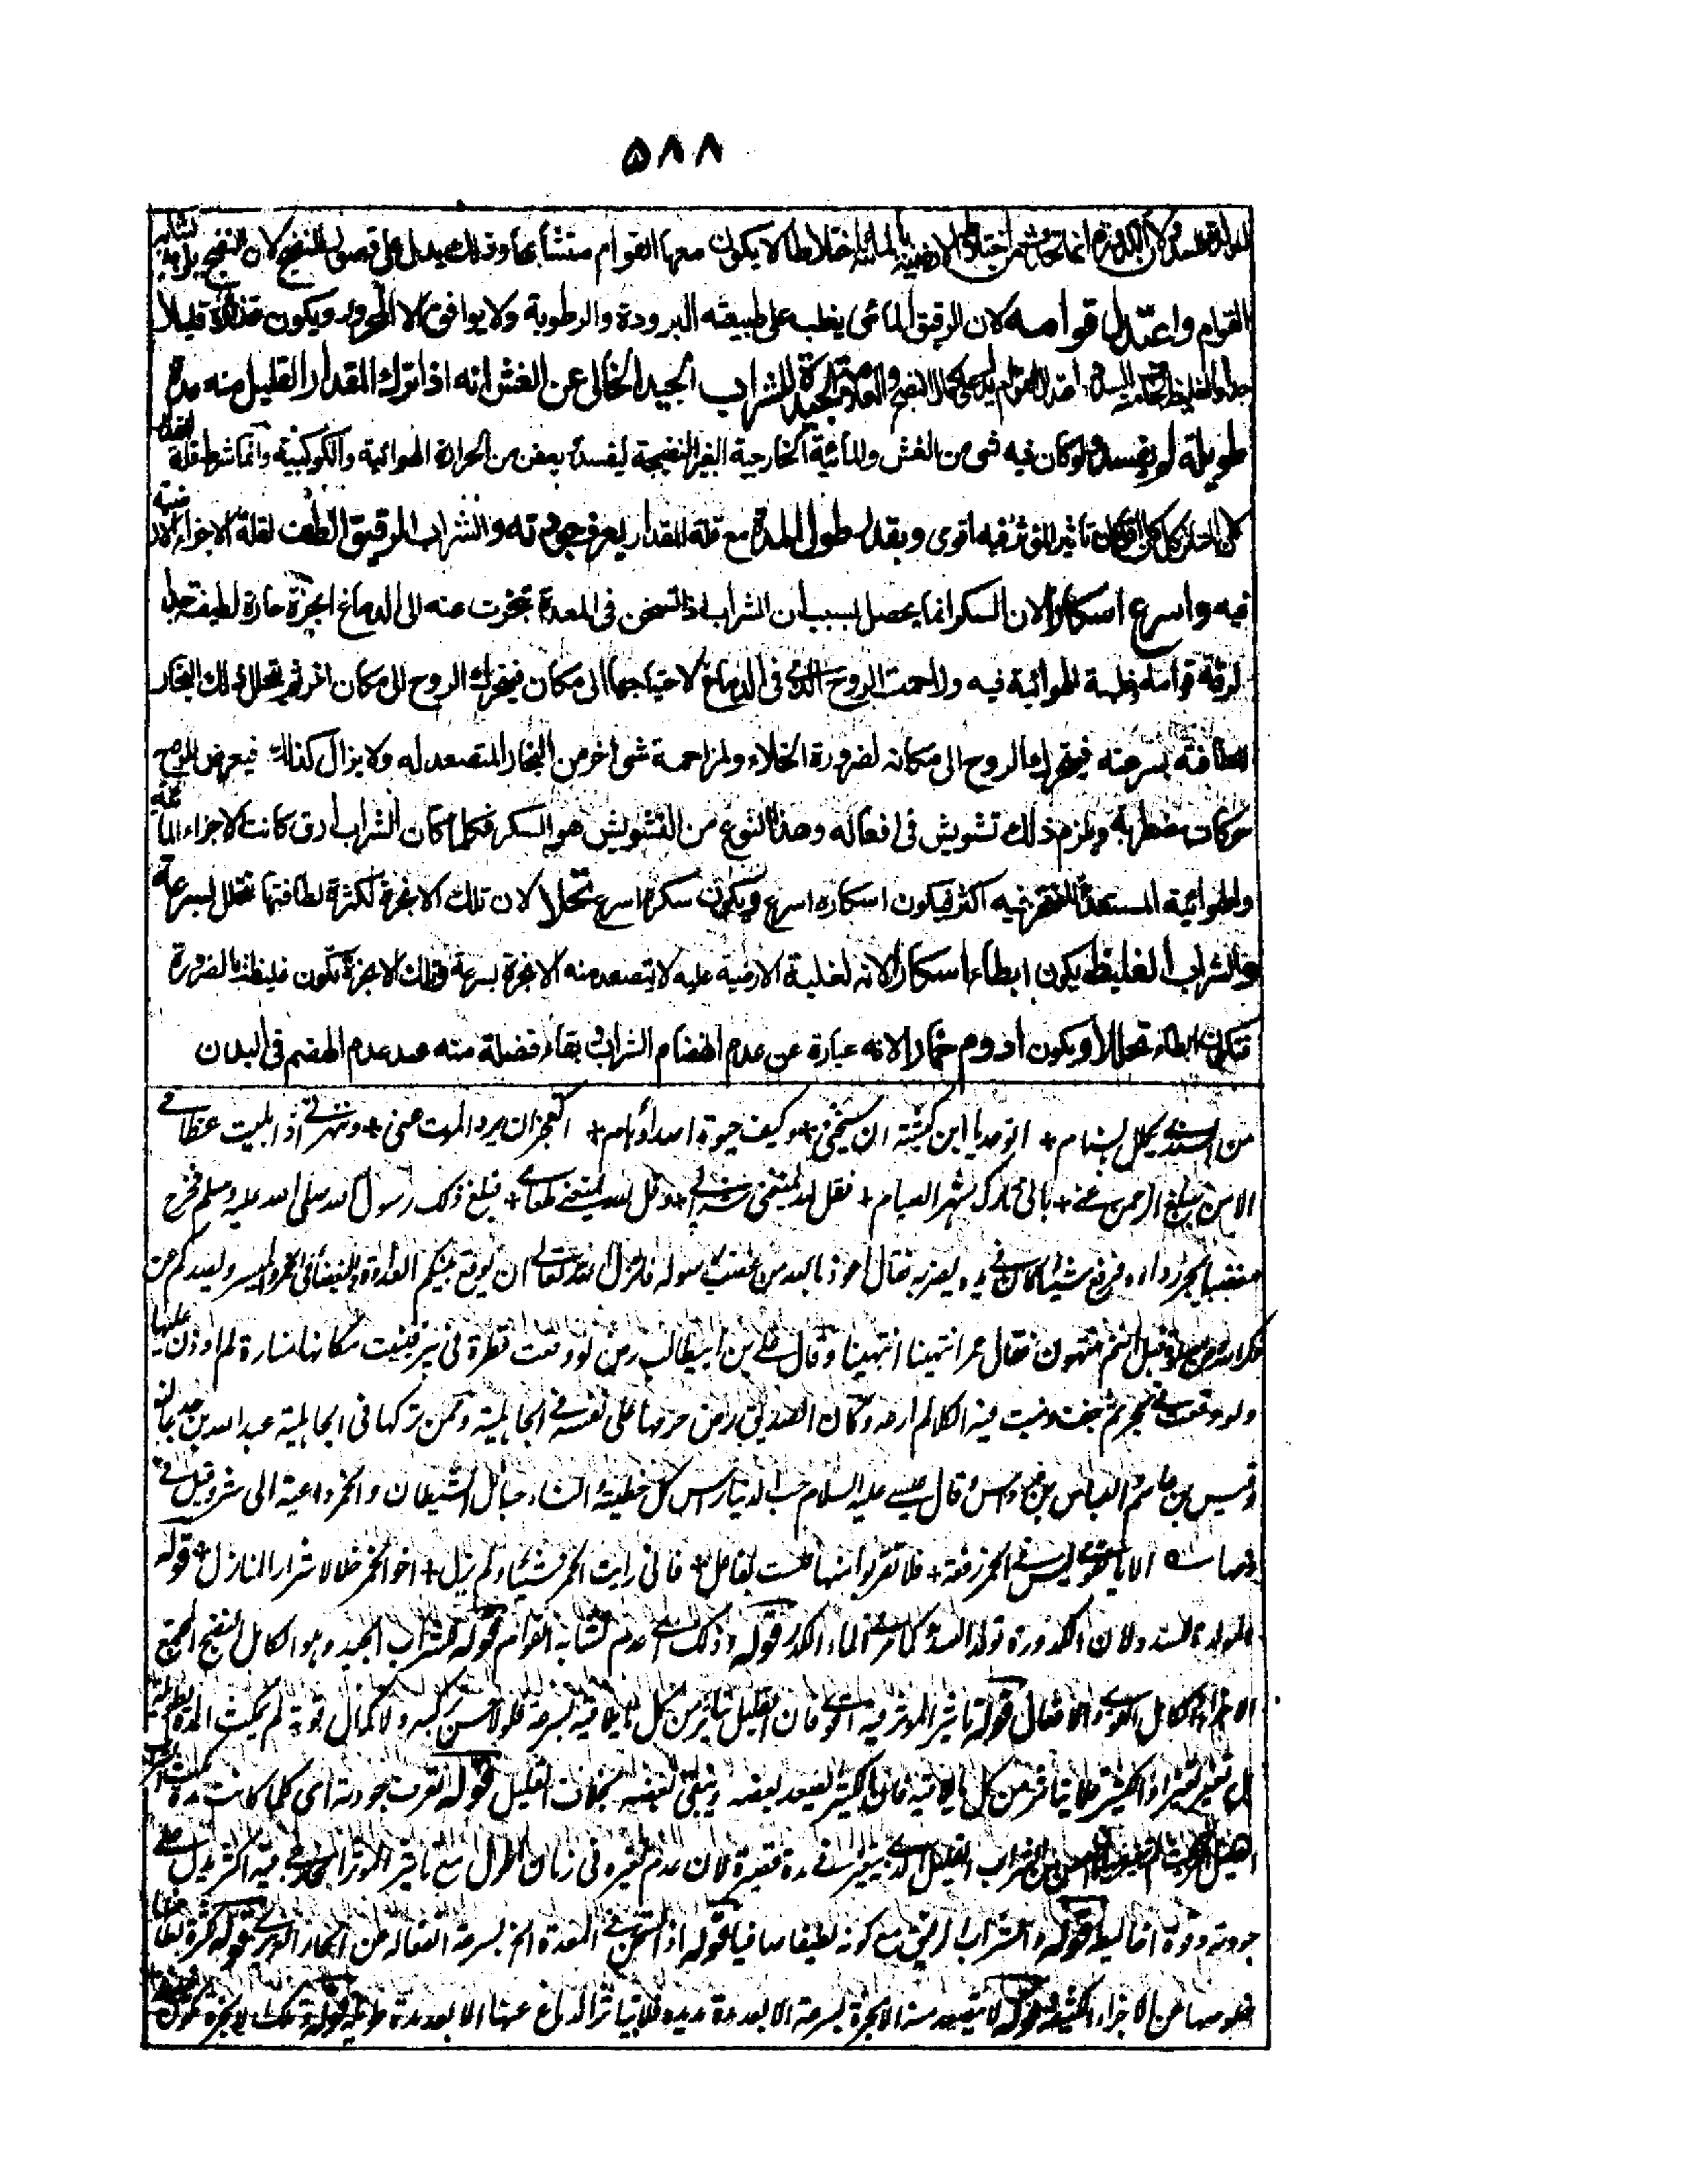 ۵۸۸
المولدة للسدد ولان الكدورة انما تحدث من اختلاط الارضية بالمائية اختلاطا لا يكون معها القوام متشابها وذلك يدل على قصور النضج لان النضج يلزمه تشابه
القوام واعتدل قوامه لان الرقيق المائى يغلب على طبيعته البرودة والرطوبة ولا يوافق الا المحرور ويكون غذاؤه قليلا
جدا والغليظ اعتدال القوام يدل على كمال النضج والعلامة الجيدة للشراب الجيد الخالى عن الغش انه اذا ترك المقدار القليل منه مدة
طويلة لم يفسد ولو كان فيه شئ من الغش والمائية الخارجية الغير النضيجة ليفسد بعفن من الحرارة الهوائية والكوكبية وانما شرط قلة المقدار
لان كلما كان اقل كان تاثير المؤثر فيه اقوى وبقدر طول المدة مع قلة المقدار يعرف جودته والشراب الرقيق الطف لقلة الاجزاء الارضية
فيه واسرع اسكارا لان السكر انما يحصل بسبب ان الشراب اذا تسخن فى المعدة تبخرت عنه الى الدماغ ابخرة حارة لطيفة جدا
لرقة قوامه وغلبة الهوائية فيه وزاحمت الروح الذى فى الدماغ لاحتياجها الى مكان فيتحرك الروح الى مكان اخر ثم يتحلل ذلك البخار
للطافته بسرعته فيتحرك الروح الى مكانه لضرورة الخلاء ولمزاحمة شئ اخر من البخار المتصعد له ولا يزال كذالك فيعرض للروح
حركات مضطربة ويلزم ذلك تشويش فى افعاله وهذا النوع من التشويش هو السكر فكلما كان الشراب ارق كانت الاجزاء المائية
والهوائية المستعدة للتبخر فيه اكثر فيكون اسكاره اسرع ويكون سكره اسرع تحللا لان تلك الابخرة لكثرة لطافتها تتحلل بسرعة
والشراب الغليظ يكون ابطاء اسكارا لانه لغلبة الارضية عليه لا يتصعد منه الابخرة بسرعة وتلك الابخرة تكون غليظة بالضرورة
فتكون ابطاء تحللا ويكون ادوم خمارا لانه عبارة عن عدم انهضام الشراب وبقاء فضلة منه عند عدم الهضم فى البدن
من يكلل بسنام + اتوعدنا ابن كبشة ان سنحيى + وكيف حيوة اصداء وهام + اتعجز ان يرد الموت عنى + وتنشرنى اذا بليت عظامى
الا من مبلغ الرحمن عنى + بانى تارك شهر الصيام + فقل لله يمنعنى شرابى + وقل لله يمنعنى طعامى + فبلغ ذلك رسول الله صلى الله عليه وسلم فخرج
مغضبا يجر رداءه فرفع شيئا كان فى يده ليضربه فقال اعوذ بالله من غضب رسوله فانزل الله تعالى ان يوقع بينكم العداوة والبغضاء فى الخمر والميسر ويصدكم عن
ذكر الله وعن الصلوة فهل انتم منتهون فقال عمر انتهينا انتهينا وقال على بن ابيطالب رض لو وقعت قطرة فى بئر فبنيت مكانها منارة لم اوذن عليها
ولو وقعت فى بحر ثم جف ونبت فيه الكلا لم ارعه وكان الصديق رض حرمها على نفسه فى الجاهلية وممن تركها فى الجاهلية عبد الله بن جدعان
وقيس بن عاصم والعباس بن مرداس وقال عيسى عليه السلام حب الدنيا راس كل خطيئة والنساء حبائل الشيطان والخمر داعية الى شر وقيل فى
الا يا قوم ليس فى الخمر رفعة + فلا تقربوا منها فلست بفاعل + فانى رايت الخمر شيئا ولم يزل + اخو الخمر حلالا شرار المنازل + قوله
المولدة للسدد ولان الكدورة تولد السدد كما مر فى الماء الكدر قوله وذلك اى عدم تشابه القوام قوله للشراب الجيد وهو الكامل النضج
الكامل القوى والافعال قوله تاثير المؤثر فيه اقوى فان القليل يتاثر من كل ما يلاقيه بسرعة فلولا حسن تركيبه وكمال قوته لم يمكث المدة الطويلة
بل تغير والكثير فلا يتاثر من كل ما يلاقيه فان الكثير يفسد بعضه ويبقى بعضه بخلاف القليل قوله يعرف جودته اى كلما كانت مدة مكث
القليل الذى يتغير فى مدة قصيرة لان عدم تغيره فى زمان اطول مع تاثير المؤثر الخارجى فيه اكثر يدل على
جودته وقوة قوله والشراب الرقيق مع كونه لطيفا صافيا قوله اذا تسخن فى المعدة الخ بسرعة انفعاله من الحار الغريزى قوله لكثرة لطافتها
خلوصها عن الاجزاء الكثيفة قوله لا يتصعد منه الابخرة بسرعة الا بعد مدة مديدة فلا يتاثر الدماغ عنها الا بعد مدة طويلة قوله وتلك الابخرة تكون